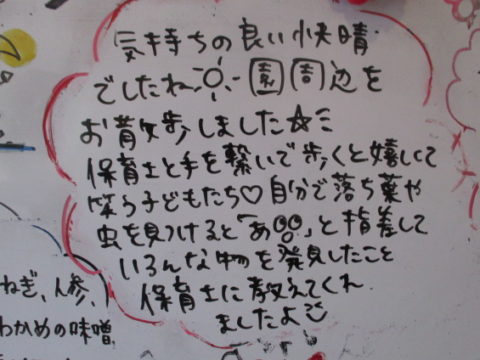 気持ちの良い快晴
でしたね 園周辺を
お散歩しました☆ミ
保育士と手を繋いで歩くと嬉しくて
笑う子どもたち♡自分で落ち葉や
虫を見つけると「あ!!」と指差して
いろんな物を発見したこと
保育士に教えてくれ
ましたよ
ねぎ、人参、
わかめの味噌